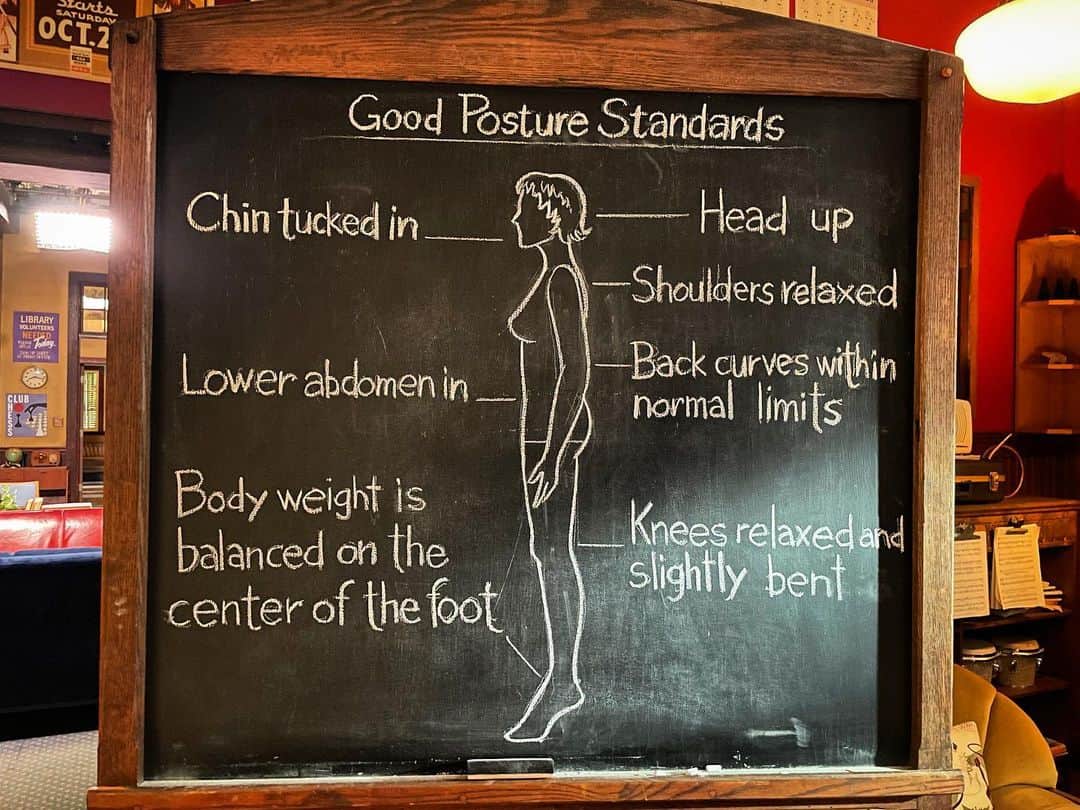 Starts
SATURDAY
OCT.2
Good Posture Standards
Chin tucked in
Head up
Shoulders relaxed
Back curves within
normal limits
Lower abdomen in
Body weight is
balanced on the
center of the foot
Knees relaxed and
slightly bent
LIBRARY
VOLUNTEERS
NEEDED
Today
CLUB
CHESS